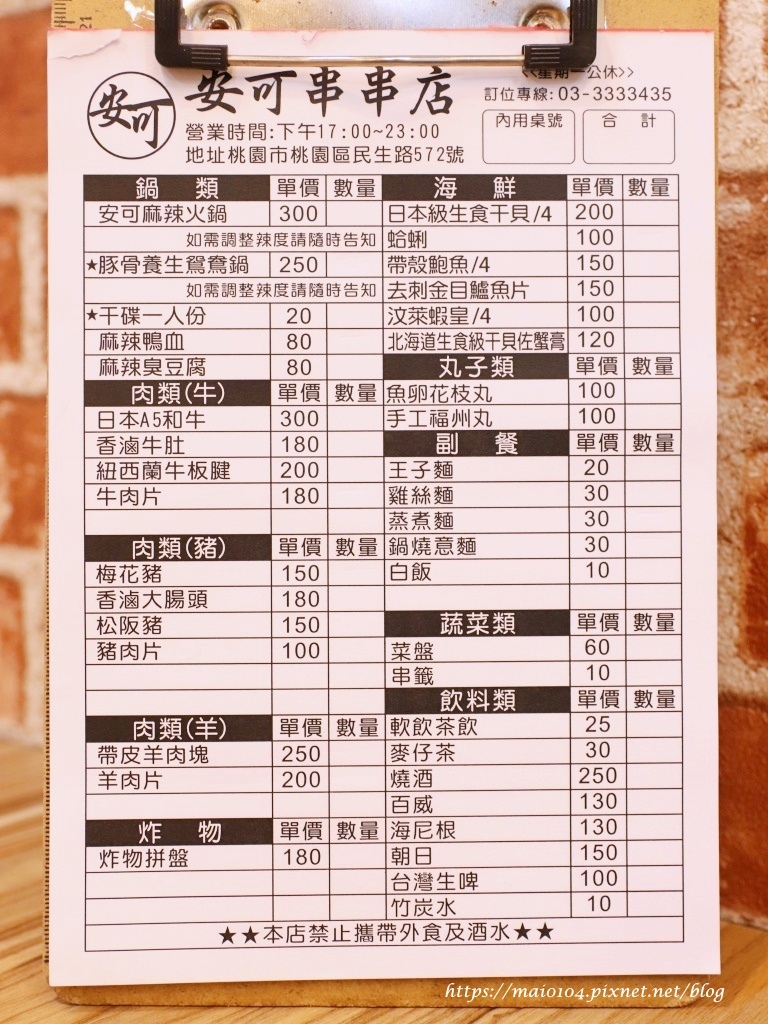 安可
安可串串店
<<星期一公休>>
訂位專線:03-3333435
營業時間:下午17:00~23:00
地址桃園市桃園區民生路572號
內用桌號
合 計
鍋 類 單價 數量
安可麻辣火鍋 300
如需調整辣度請隨時告知
★豚骨養生鴛鴦鍋 250
如需調整辣度請隨時告知
★干碟一人份 20
麻辣鴨血 80
麻辣臭豆腐 80
肉類(牛) 單價 數量
日本A5和牛 300
香滷牛肚 180
紐西蘭牛板腱 200
牛肉片 180
肉類(豬) 單價 數量
梅花豬 150
香滷大腸頭 180
松阪豬 150
豬肉片 100
肉類(羊) 單價 數量
帶皮羊肉塊 250
羊肉片 200
炸 物 單價 數量
炸物拼盤 180
海 鮮 單價 數量
日本級生食干貝/4 200
蛤蜊 100
帶殼鮑魚/4 150
去刺金目鱸魚片 150
汶萊蝦皇/4 100
北海道生食級干貝佐蟹膏 120
丸子類 單價 數量
魚卵花枝丸 100
手工福州丸 100
副 餐 單價 數量
王子麵 20
雞絲麵 30
蒸煮麵 30
鍋燒意麵 30
白飯 10
蔬菜類 單價 數量
菜盤 60
串籤 10
飲料類 單價 數量
軟飲茶飲 25
麥仔茶 30
燒酒 250
百威 130
海尼根 130
朝日 150
台灣生啤 100
竹炭水 10
★★本店禁止攜帶外食及酒水★★
https://maio104.pixnet.net/blog
21